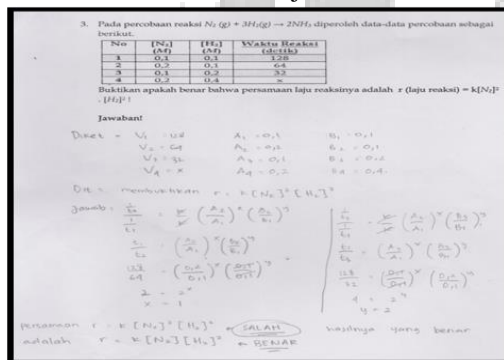 3. Pada percobaan reaksi N₂ (g) + 3H₂(g) → 2NH₃ diperoleh data-data percobaan sebagai
berikut.
No [N₂] (M) [H₂] (M) Waktu Reaksi (detik)
1 0,1 0,1 128
2 0,2 0,1 64
3 0,1 0,2 32
4 0,2 0,4 x
Buktikan apakah benar bahwa persamaan laju reaksinya adalah r (laju reaksi) = k[N₂]²
. [H₂]² !
Jawaban!
Diket = V₁ = A₁ = 0,1 B₁ = 0,1
V₂ = 64 A₂ = 0,2 B₂ = 0,1
V₃ = 32 A₃ = 0,1 B₃ = 0,2
V₄ = x A₄ = 0,2 B₄ = 0,4
Dit = membuktikan r = k [N₂]² [H₂]²
Jawab =
128/64 =
2 = 2ˣ
x = 1
128/32 =
4 = 2ʸ
y = 2
Persamaan r = k [N₂]² [H₂]² ← SALAH hasilnya yang benar
adalah r = k [N₂] [H₂]² ← BENAR